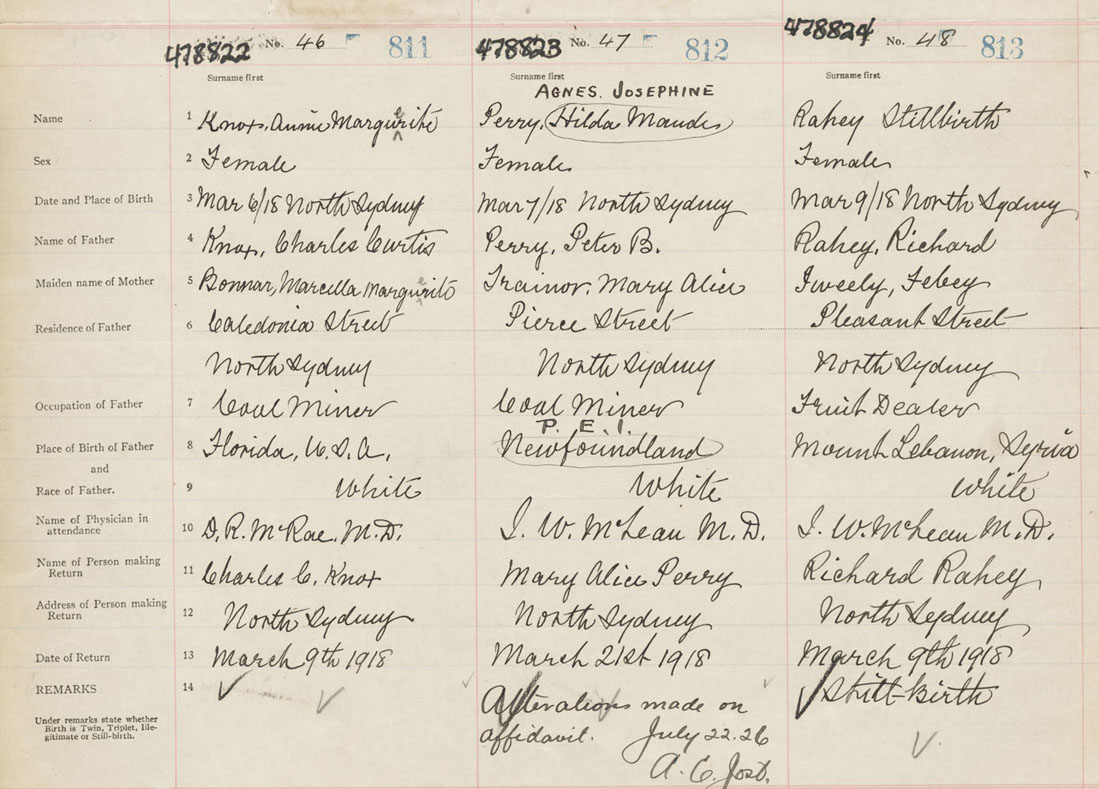 478822 No. 46 811 478823 No. 47 812 478824 No. 48 813
Surname first Surname first Surname first
AGNES. JOSEPHINE
Name 1 Knox, Annie Marguerite Perry, Hilda Maude Rahey Stillbirth
Sex 2 Female Female Female
Date and Place of Birth 3 Mar 6/18 North Sydney Mar 7/18 North Sydney Mar 9/18 North Sydney
Name of Father 4 Knox, Charles Curtis Perry, Peter B. Rahey, Richard
Maiden name of Mother 5 Bonnar, Marcella Marguerite Trainor, Mary Alice Febey
Residence of Father 6 Caledonia Street Pierce Street Pleasant Street
North Sydney North Sydney North Sydney
Occupation of Father 7 Coal Miner Coal Miner Fruit Dealer
P. E. I.
Place of Birth of Father 8 Florida, U.S.A., Newfoundland Mount Lebanon, Syria
and
Race of Father. 9 White White White
Name of Physician in
attendance 10 D. R. McRae, M.D. I. W. McLean M.D. I. W. McLean M.D.
Name of Person making
Return 11 Charles C. Knox Mary Alice Perry Richard Rahey,
Address of Person making
Return 12 North Sydney North Sydney North Sydney
Date of Return 13 March 9th 1918 March 21st 1918 March 9th 1918
REMARKS 14 Alterations made on Still-birth
Under remarks state whether
Birth is Twin, Triplet, Ille-
gitimate or Still-bith.
affidavit. July 22.26
A. C. Jost.